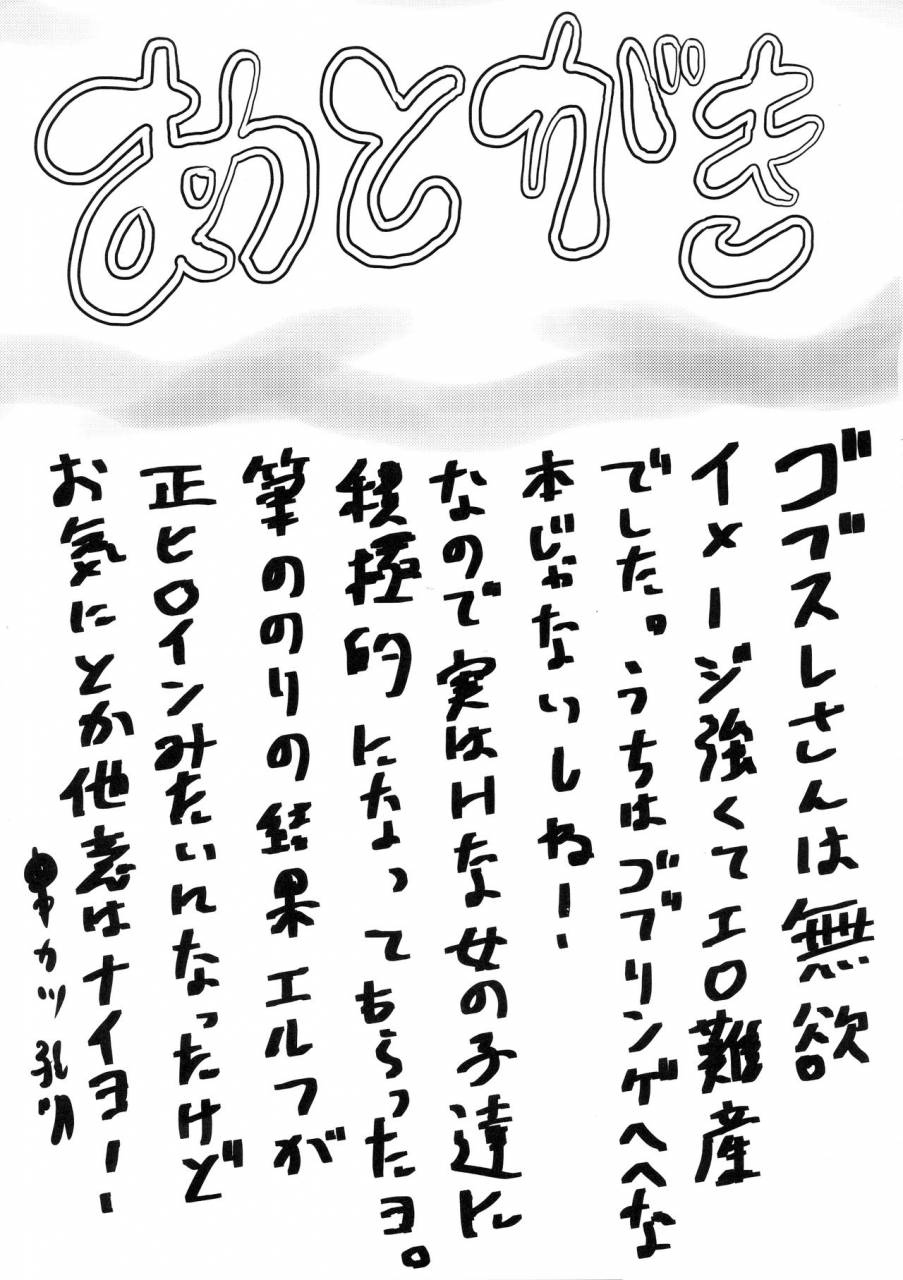 あとがき
ゴブスレさんは無欲。
イメージ強くてエロ難産
でした。うちはゴブリンゲヘヘな
本じゃないしね！
なので実はHな女の子達に
積極的になってもらったヨ。
筆ののりの結果エルフが
正ヒロインみたいになったけど
お気にとか他意はナイヨー！